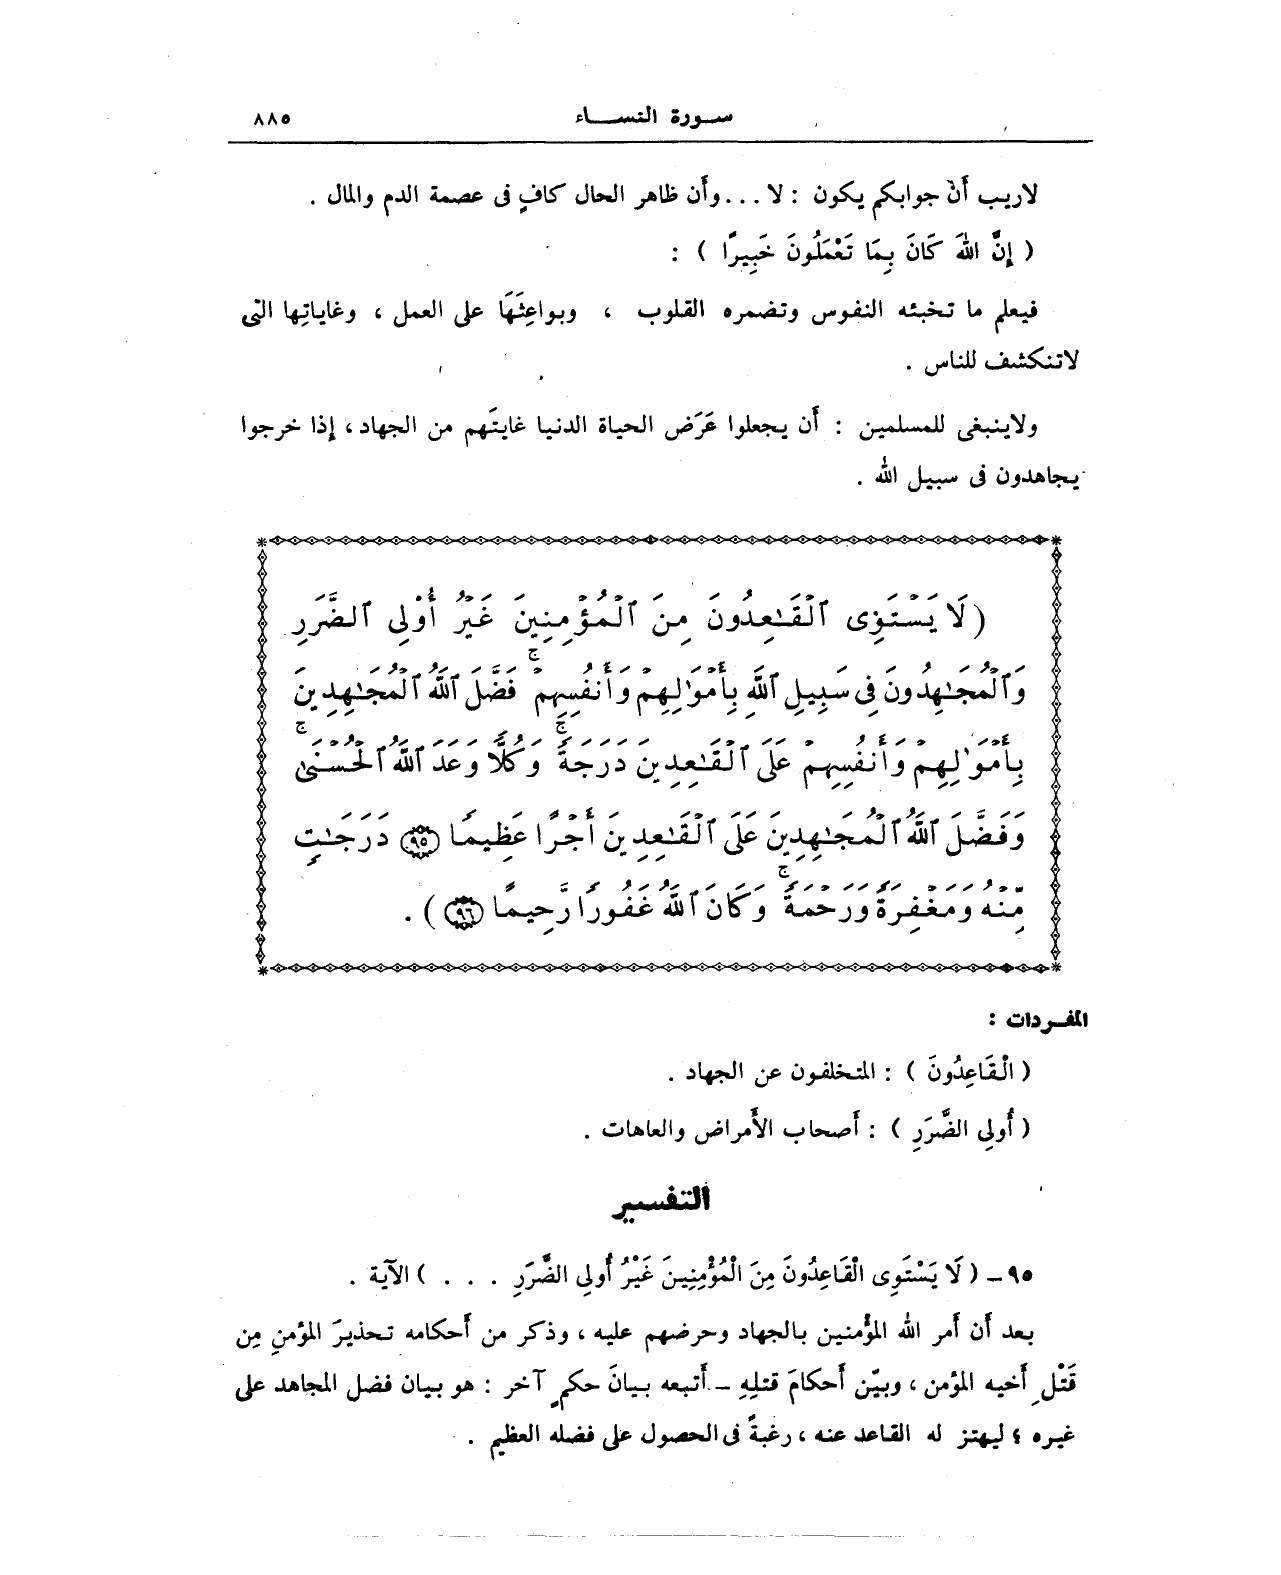 سورة النساء ٨٨٥
لاريب أَنّ جوابكم يكون : لا ... وأَن ظاهر الحال كافٍ فى عصمة الدم والمال .
( إِنَّ اللهَ كَانَ بِمَا تَعْمَلُونَ خَبِيرًا ) :
فيعلم ما تخبئه النفوس وتضمره القلوب ، وبواعِثَهَا على العمل ، وغاياتِها التى
لاتنكشف للناس .
ولاينبغى للمسلمين : أَن يجعلوا عَرَض الحياة الدنيا غايتَهم من الجهاد ، إذا خرجوا
يجاهدون فى سبيل الله .
( لَا يَسْتَوِى ٱلْقَـٰعِدُونَ مِنَ ٱلْمُؤْمِنِينَ غَيْرُ أُوْلِى ٱلضَّرَرِ
وَٱلْمُجَـٰهِدُونَ فِى سَبِيلِ ٱللَّهِ بِأَمْوَٰلِهِمْ وَأَنفُسِهِمْ ۚ فَضَّلَ ٱللَّهُ ٱلْمُجَـٰهِدِينَ
بِأَمْوَٰلِهِمْ وَأَنفُسِهِمْ عَلَى ٱلْقَـٰعِدِينَ دَرَجَةً ۚ وَكُلًّا وَعَدَ ٱللَّهُ ٱلْحُسْنَىٰ ۚ
وَفَضَّلَ ٱللَّهُ ٱلْمُجَـٰهِدِينَ عَلَى ٱلْقَـٰعِدِينَ أَجْرًا عَظِيمًا (٩٥) دَرَجَـٰتٍ
مِّنْهُ وَمَغْفِرَةً وَرَحْمَةً ۚ وَكَانَ ٱللَّهُ غَفُورًا رَّحِيمًا (٩٦) ) .
المفردات :
( الْقَاعِدُونَ ) : المتخلفون عن الجهاد .
( أُولِى الضَّرَرِ ) : أَصحاب الأَمراض والعاهات .
التفسير
٩٥ - ( لَا يَسْتَوِى الْقَاعِدُونَ مِنَ الْمُؤْمِنِينَ غَيْرُ أُولِى الضَّرَرِ . . . ) الآية .
بعد أَن أَمر الله المؤْمنين بالجهاد وحرضهم عليه ، وذكر من أَحكامه تحذيرَ المؤمنِ مِن
قَتْلِ أَخيه المؤمن ، وبيّن أَحكامَ قتلِهِ - أَتبعه بيانَ حكمٍ آخر : هو بيان فضل المجاهد على
غيره ؛ ليهتز له القاعد عنه ، رغبةً فى الحصول على فضله العظيم .